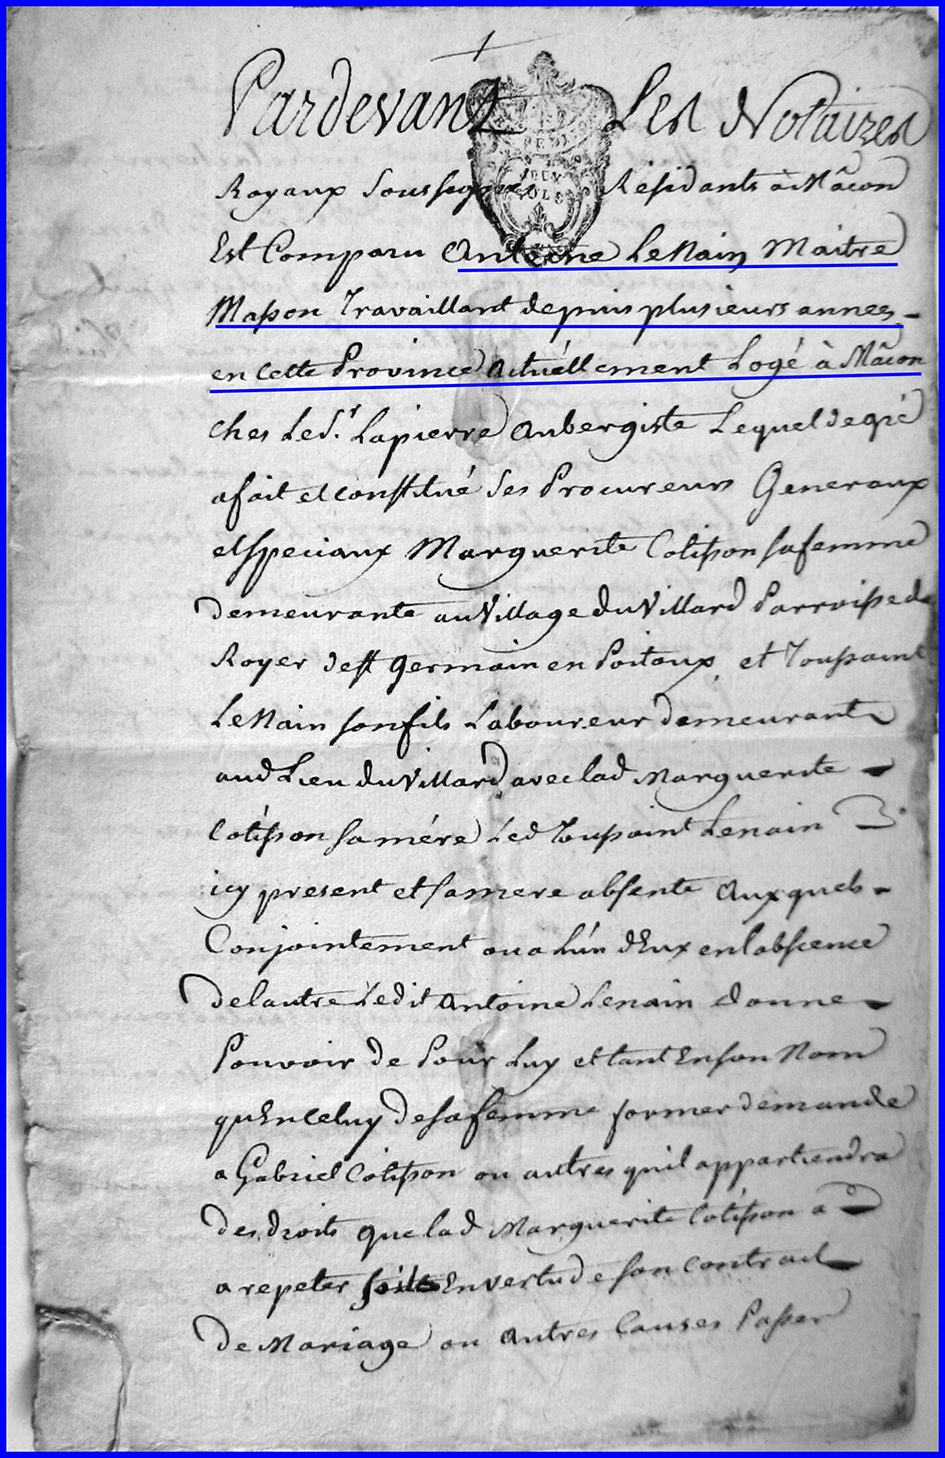 Pardevant Les Notaires
Royaux Soussignes Résidants à Mâcon
Est Comparu Antoine LeNain Maitre
Masson Travaillant depuis plusieurs annees
en Cette Province Actuéllement Logé à Mâcon
ches Led.t Sr. Lapierre Aubergiste Lequel de gré
a fait et constitué Ses Procureurs Generaux
et Speciaux Marguerite Cotisson sa femme
demeurante au Village du Villard Parroisse de
Royer de St Germain en Poitoux et Toussaint
LeNain son fils Laboureur demeurant
aud Lieu du Villard avec lad Marguerite
Cotisson sa mére Led Toussaint Lenain
icy present et sa mere absente Auxquels
Conjointement ou a L'un d'Eux en labscence
de lautre Ledit Antoine Lenain donne
Pouvoir de Pour Luy et tant En son Nom
qu'En Celuy de sa femme former demande
a Gabriel Cotisson ou autres qu'il appartiendra
des droits que lad Marguerite Cotisson a
a repeter soit En vertu de son contract
de Mariage ou Autres Causes Passer